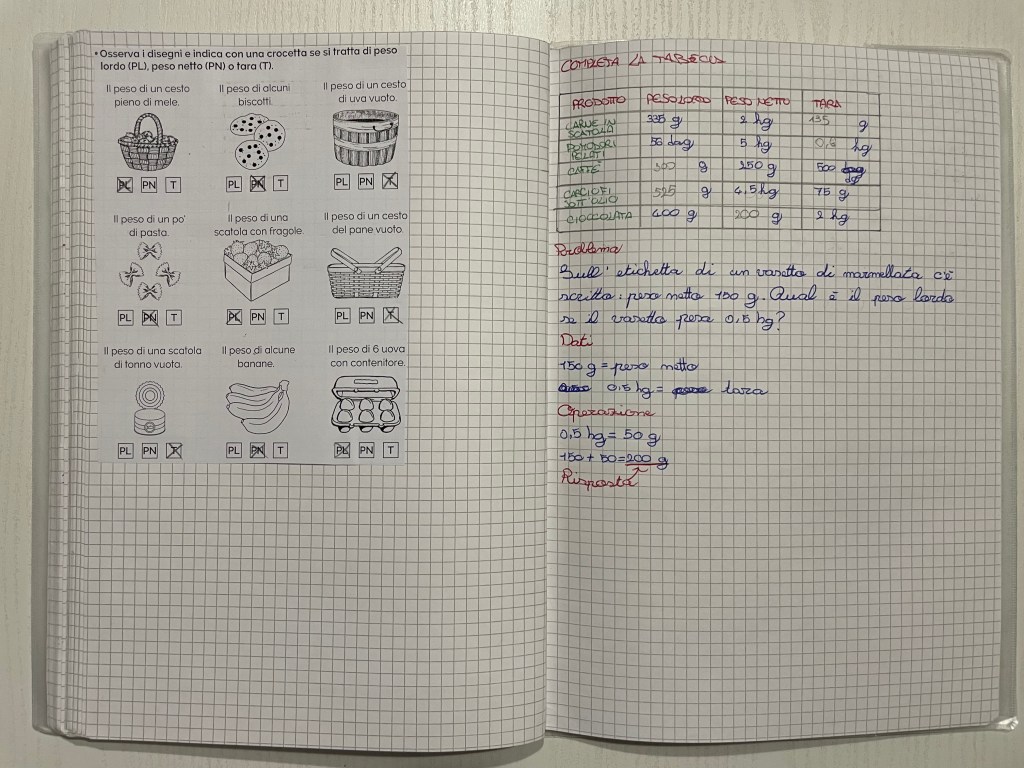 • Osserva i disegni e indica con una crocetta se si tratta di peso
lordo (PL), peso netto (PN) o tara (T).
Il peso di un cesto
pieno di mele.
PL PN T
Il peso di alcuni
biscotti.
PL PN T
Il peso di un cesto
di uva vuoto.
PL PN T
Il peso di un po'
di pasta.
PL PN T
Il peso di una
scatola con fragole.
PL PN T
Il peso di un cesto
del pane vuoto.
PL PN T
Il peso di una scatola
di tonno vuota.
PL PN T
Il peso di alcune
banane.
PL PN T
Il peso di 6 uova
con contenitore.
PL PN T
COMPLETA LA TABELLA
PRODOTTO PESO LORDO PESO NETTO TARA
CARNE IN SCATOLA 335 g 2 hg 135 g
POMODORI PELATI 56 dag 5 hg 0,6 hg
CAFFÈ 300 g 250 g 500 dg
CARCIOFI SOTT'OLIO 525 g 4,5 hg 75 g
CIOCCOLATA 400 g 200 g 2 hg
Problema
Sull'etichetta di un vasetto di marmellata c'è
scritto: peso netto 150 g. Qual è il peso lordo
se il vasetto pesa 0,5 hg?
Dati
150 g = peso netto
0,5 hg = tara
Operazione
0,5 hg = 50 g
150 + 50 = 200 g
Risposta